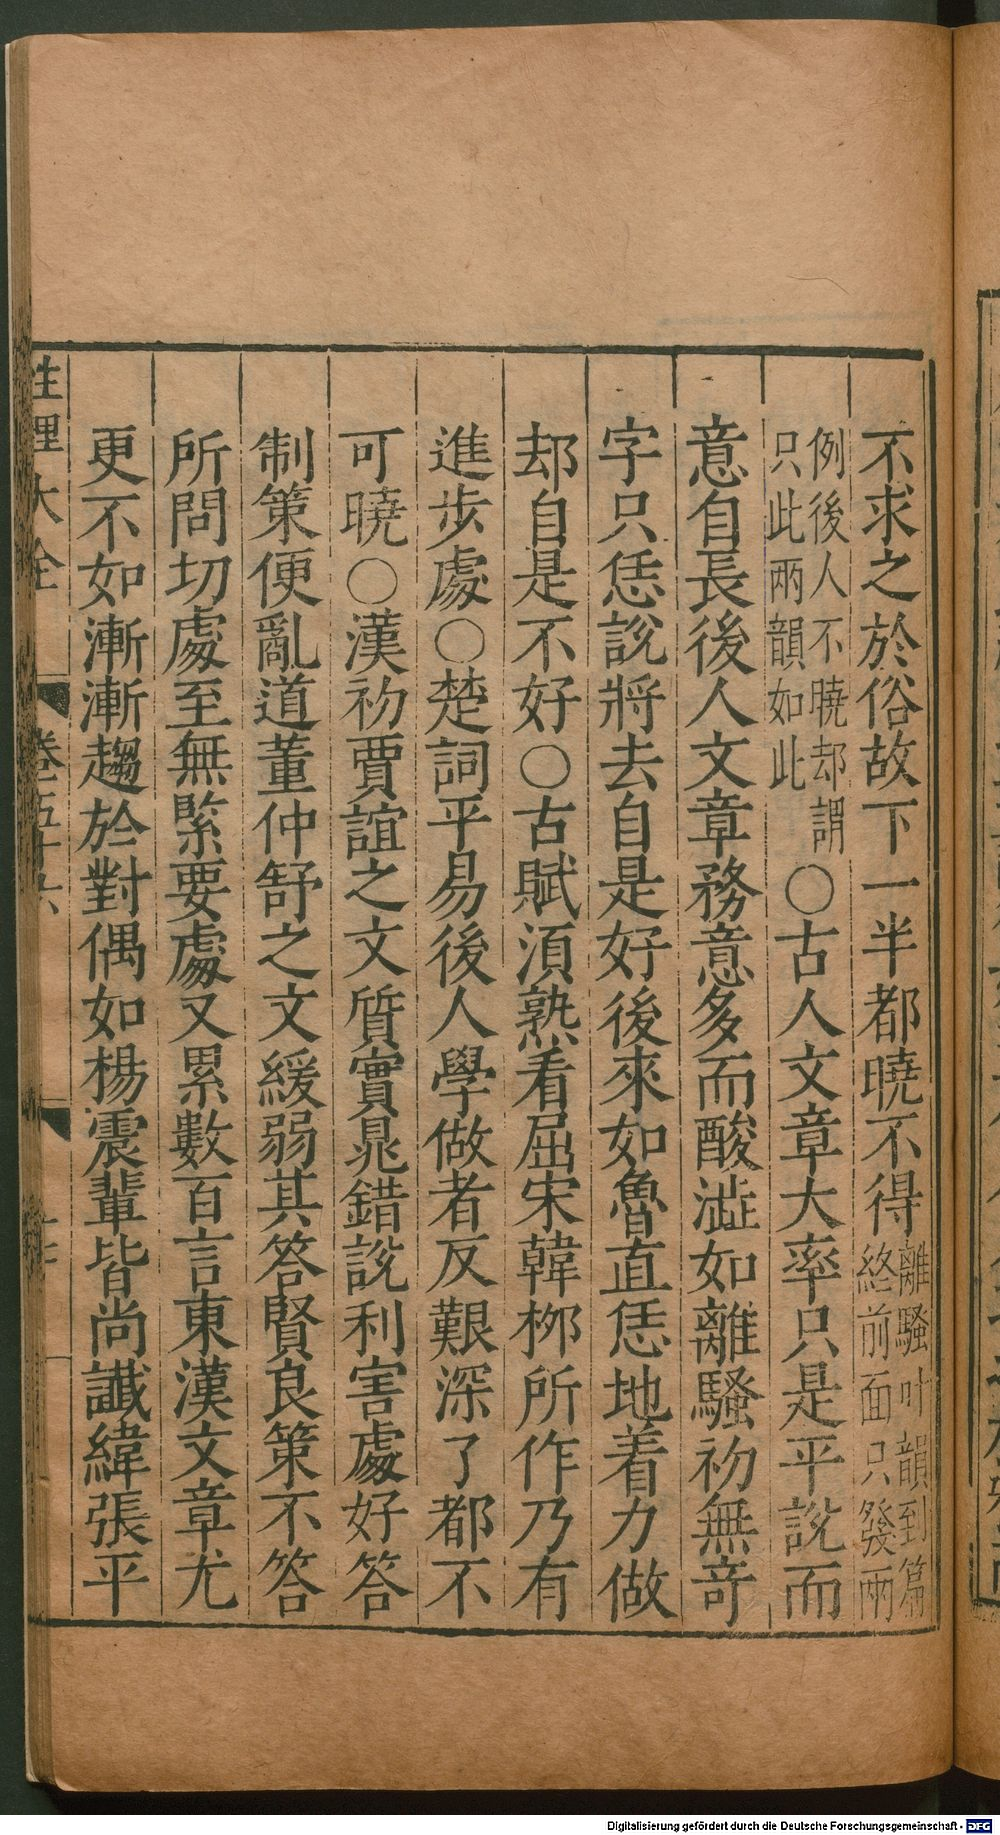 不求之於俗故下一半都曉不得離騷叶韻到篇終前面只發兩
例後人不曉却謂只此兩韻如此○古人文章大率只是平說而
意自長後人文章務意多而酸澁如離騷初無竒
字只恁說將去自是好後來如魯直恁地着力做
却自是不好○古賦須熟看屈宋韓柳所作乃有
進步處○楚詞平易後人學做者反艱深了都不
可曉○漢初賈誼之文質實晁錯說利害處好答
制策便亂道董仲舒之文緩弱其答賢良策不答
所問切處至無緊要處又累數百言東漢文章尤
更不如漸漸趨於對偶如楊震輩皆尚讖緯張平
性理大全 卷五十六
Digitalisierung gefördert durch die Deutsche Forschungsgemeinschaft - DFG